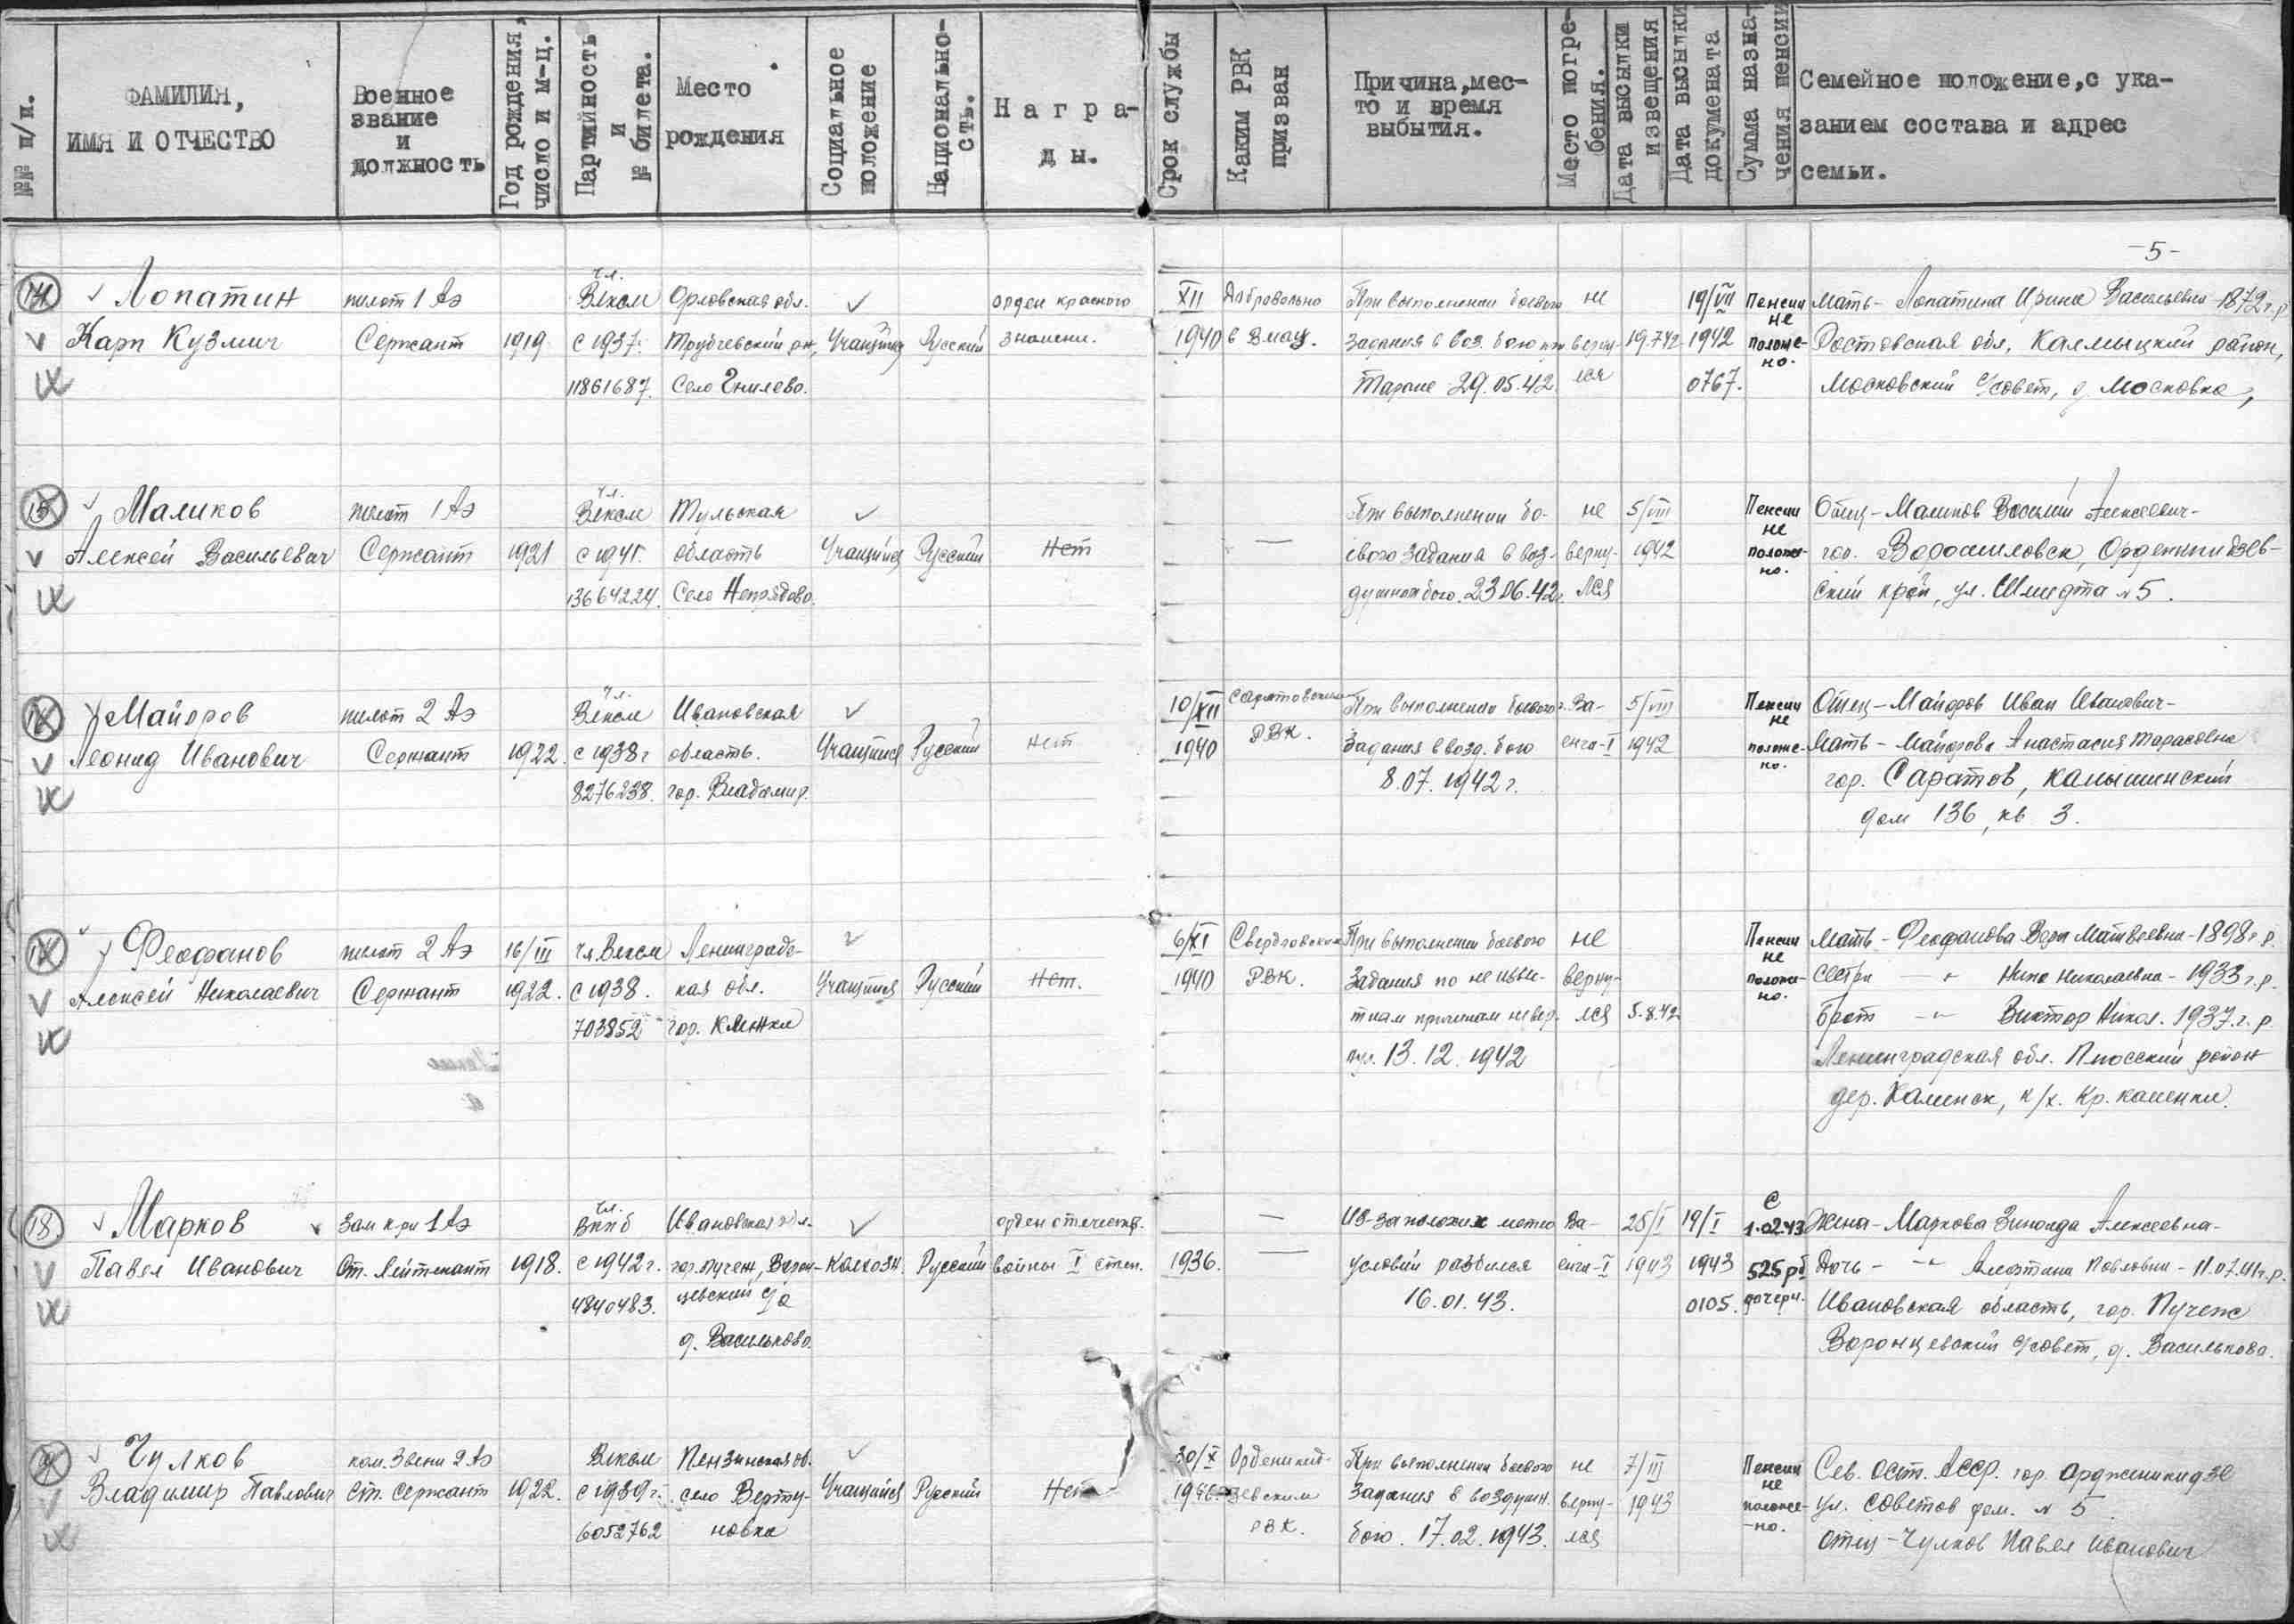 №№ п/п.
ФАМИЛИЯ,
ИМЯ И ОТЧЕСТВО
Военное
звание
и
должность
Год рождения,
число и м-ц.
Партийность
и
№ билета.
Место
рождения
Социальное
положение
Национально-
сть.
Н а г р а-
д ы.
Срок службы
Каким РВК
призван
Причина, мес-
то и время
выбытия.
Место погре-
бения.
Дата высылки
извещения
Дата высылки
документа
Сумма назна-
чения пенсии
Семейное положение, с ука-
занием состава и адрес
семьи.
-5-
14
Лопатин
Карп Кузмич
IX
пилот 1 Аэ
Сержант
1919
чл.
Влксм
с 1937г.
11861687.
Орловская обл.
Трубчевский рн,
Село Гнилево.
Учащийся
Русский
орден красного
знамени.
XII
1940
Добровольно
в Вмау.
При выполнении боевого
задания в воз. бою при
Тароне 29.05.42.
не
верну-
лся
19.7.42
19/VII
1942
0767.
Пенсии
не
положе-
но.
Мать - Лопатина Ирина Васильевна - 1872 г.р.
Ростовская обл, Калмыцкий район,
Московский с/совет, д. Московка,
15
Маликов
Алексей Васильевич
IX
пилот 1 Аэ
Сержант
1921
чл.
Влксм
с 1941г.
13664224.
Тульская
область
Село Непрядово.
Учащийся
Русский
Нет
—
При выполнении бо-
евого задания в воз-
душном бою. 23.06.42г.
не
верну-
лся
5/VIII
1942
Пенсии
не
положе-
но.
Отец - Маликов Василий Алексеевич-
гор. Ворошиловск, Орденкидзев-
ский край, ул. Шмидта №5.
16
Майоров
Леонид Иванович
IX
пилот 2 Аэ
Сержант
1922.
чл.
Влксм
с 1938г
8276238.
Ивановская
область.
гор. Владимир.
Учащийся
Русский
нет
10/XII
1940
Саратовским
РВК.
При выполнении боевого
задания в возд. бою
8.07.1942г.
г. Ва-
енга-I
5/VIII
1942
Пенсии
не
положе-
но.
Отец - Майоров Иван Иванович-
Мать - Майорова Анастасия Тарасовна
гор. Саратов, Камышинский
дом 136, кв 3.
17
Феофанов
Алексей Николаевич
IX
пилот 2 Аэ
Сержант
16/III
1922.
чл. Влксм
с 1938.
703852
Ленинградс-
кая обл.
Учащийся
Русский
Нет.
6/XI
1940
Свердловским
РВК.
При выполнении боевого
задания по не изве-
тным причинам не вер-
нул. 13.12.1942
не
верну-
лся
5.8.42
Пенсии
не
положе-
но.
Мать - Феофанова Вера Матвеевна - 1898 г.р.
Сестра — " Нина Николаевна - 1933 г.р.
Брат — " Виктор Никол. 1937.г.р.
Ленинградская обл. Плюсский район
дер. Каменск, к/х. Кр. каменка.
18.
Марков
Павел Иванович
IX
Зам к-ра 1 Аэ
Ст. Лейтенант
1918.
чл.
Вкпб
с 1942г.
4840483.
Ивановская обл.
гор. Пучеж, Ворон-
цевский с/с
д. Васильково.
Колхозн.
Русский
орден отечеств.
войны I степ.
1936.
—
—
Из-за плохих метео
условий разбился
16.01.43.
Ва-
енга-I
25/I
1943
19/I
1943
0105.
С
1.02.43
525 рб
дочери.
Жена - Маркова Зинаида Алексеевна-
Дочь - " Павловна - 11.07.41г.р.
Ивановская область, гор. Пучеж
Воронцевский с/совет, д. Васильково.
19
Чулков
Владимир Павлович
IX
ком. Звени 2 Аэ
Ст. Сержант
1922.
Влксм
с 1939г.
6052762
Пензинская об.
село Верту-
новка
Учащийся
Русский
Нет
30/X
1940
Орденикид-
зевским
РВК.
При выполнении боевого
задания в воздушн.
бою. 17.02.1943.
не
верну-
лся
7/III
1943
Пенсии
не
положе-
но.
Сев. Осет. Асср. гор. Орджоникидзе
ул. Советов дом. №5
Отец - Чулков Павел Иванович